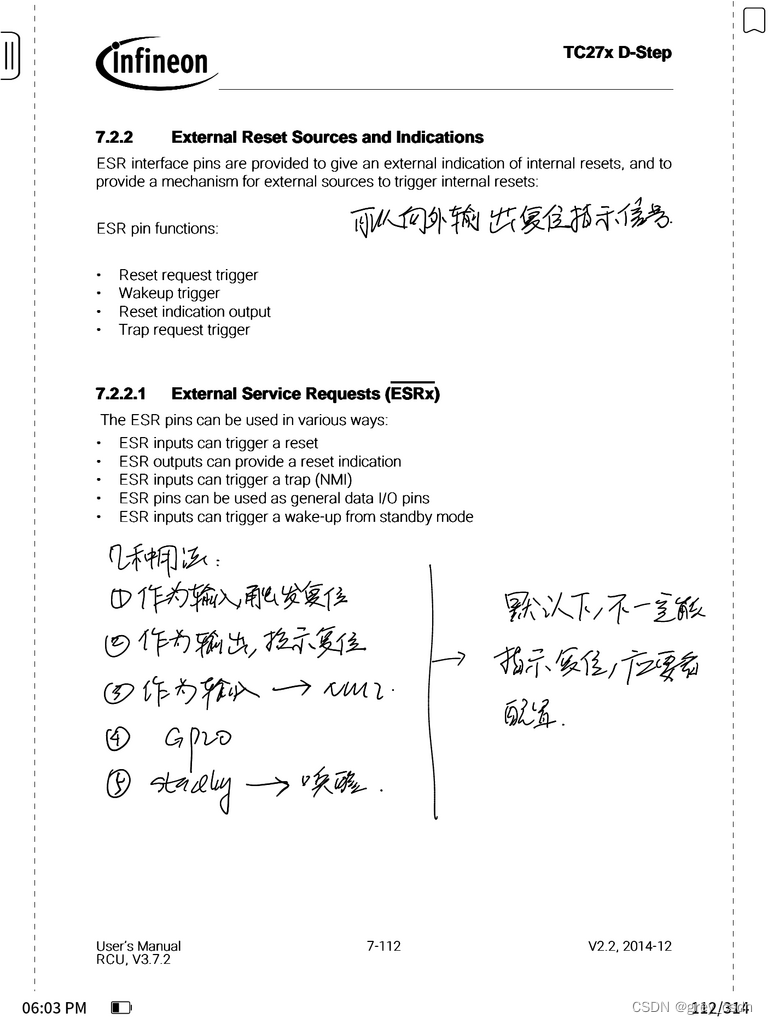 infineon
TC27x D-Step
7.2.2 External Reset Sources and Indications
ESR interface pins are provided to give an external indication of internal resets, and to
provide a mechanism for external sources to trigger internal resets:
可以向外输出复位指示信号.
ESR pin functions:
• Reset request trigger
• Wakeup trigger
• Reset indication output
• Trap request trigger
7.2.2.1 External Service Requests (ESRx)
The ESR pins can be used in various ways:
• ESR inputs can trigger a reset
• ESR outputs can provide a reset indication
• ESR inputs can trigger a trap (NMI)
• ESR pins can be used as general data I/O pins
• ESR inputs can trigger a wake-up from standby mode
几种用法:
① 作为输入,触发复位
② 作为输出,指示复位
③ 作为输入 → NMI.
④ GPIO
⑤ stadby → 唤醒.
→ 默认下,不一定能
指示复位,应要看
配置.
User's Manual 7-112 V2.2, 2014-12
RCU, V3.7.2
06:03 PM 112/314
CSDN @